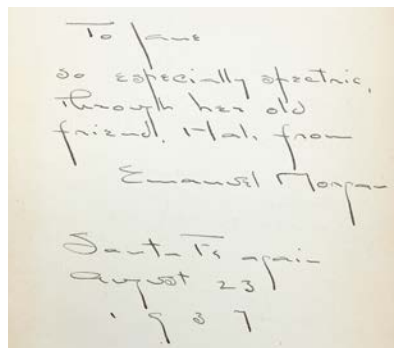 To Jane
so especially spectric,
through her old
friend, Hal, from
Emanuel Morgan
Santa Fe again
August 23
1937